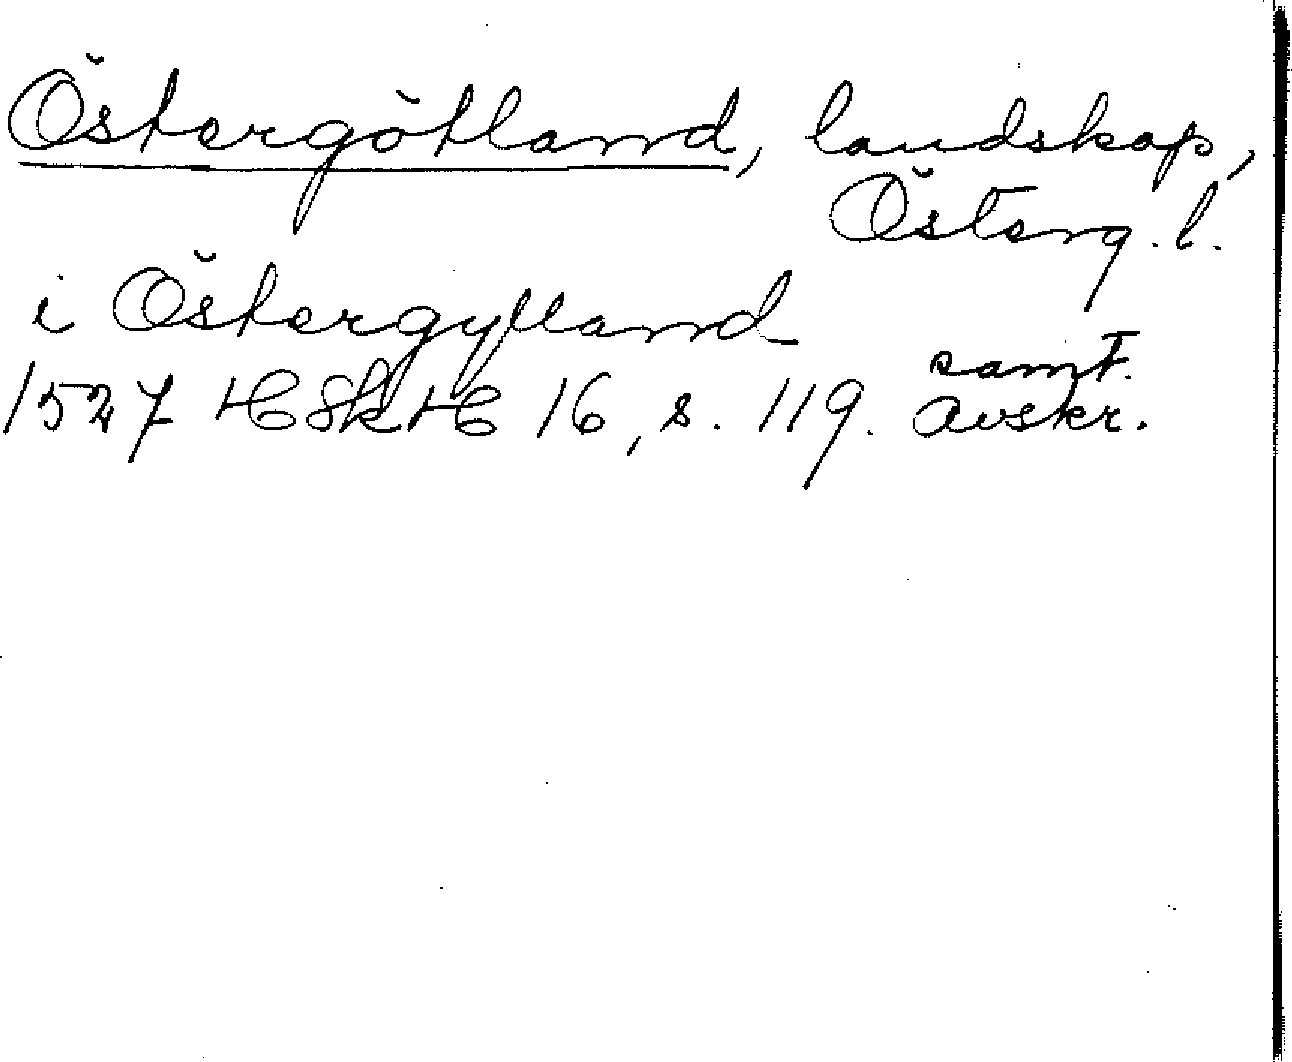 Östergötland, landskap,
Österg. l.
i Östergylland
samt.
1527 HSkH 16, s. 119. avskr.